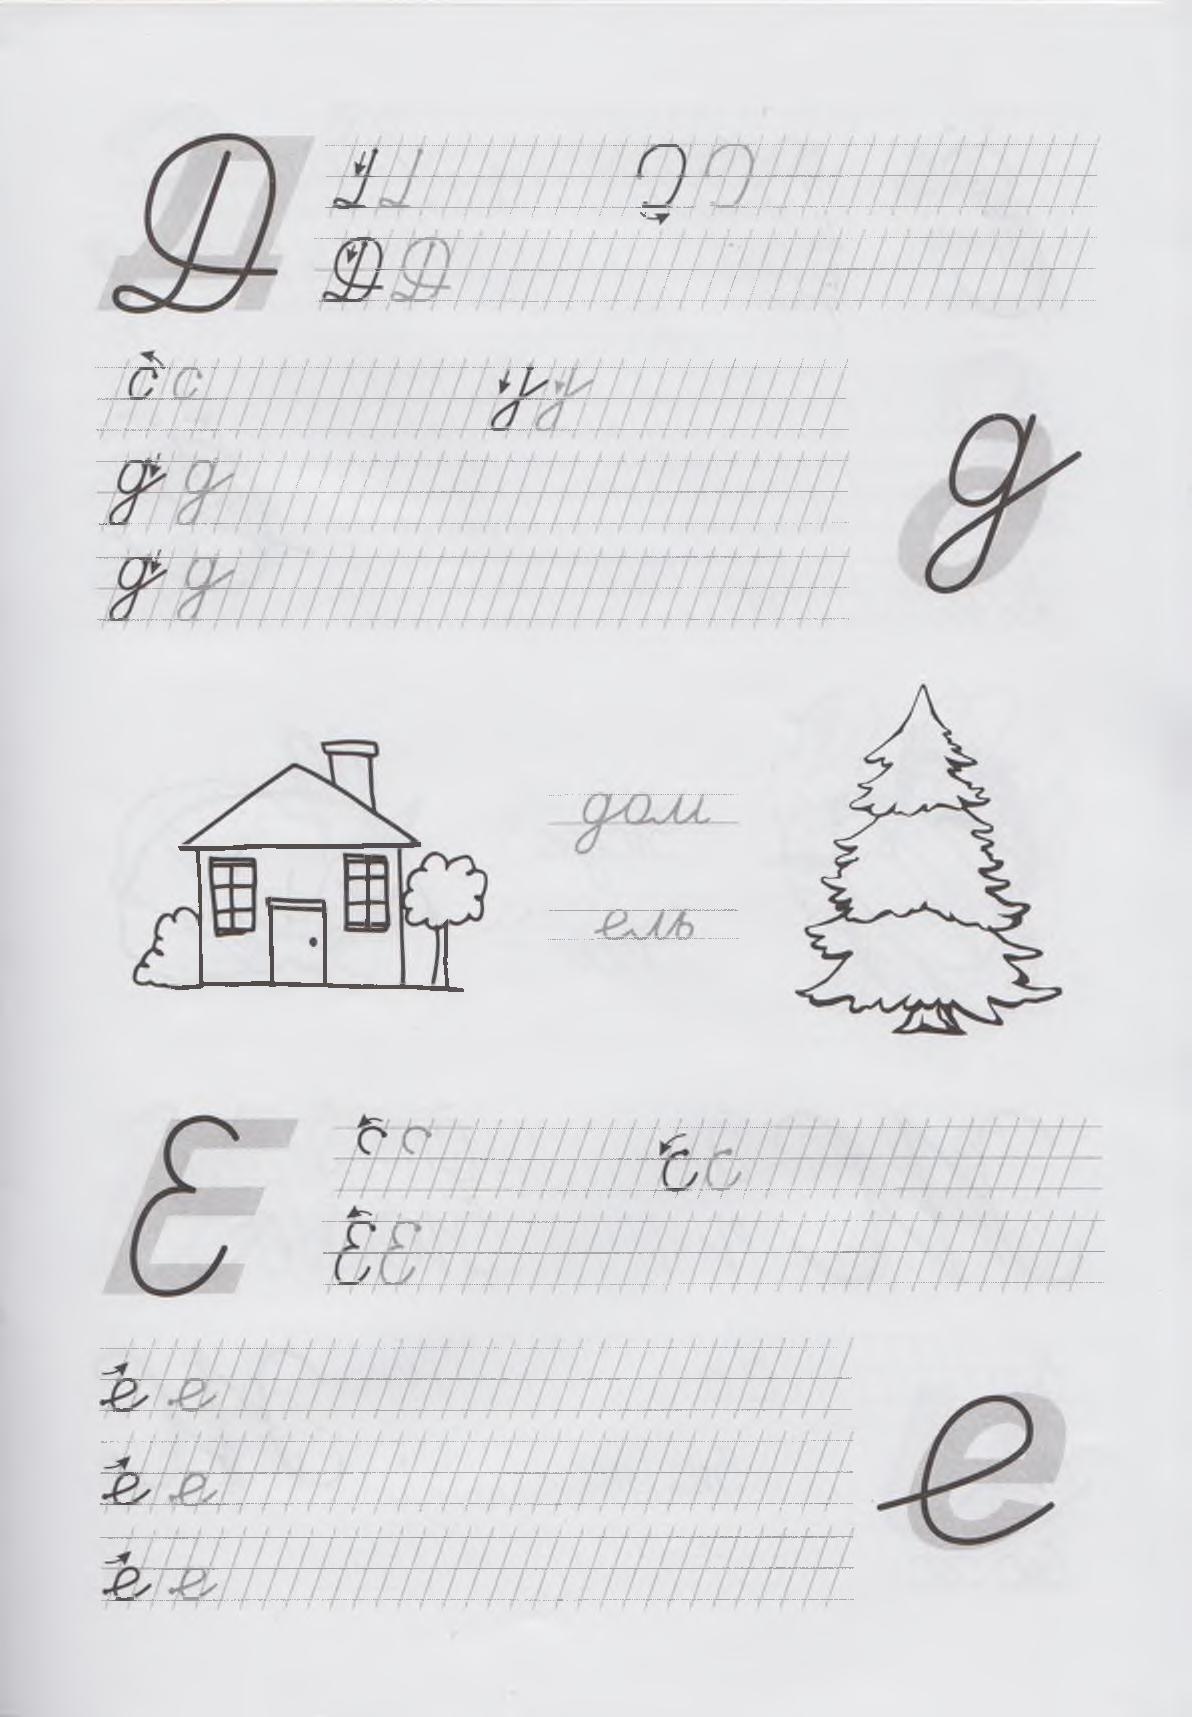 Д
д
дом
ель
Е
е